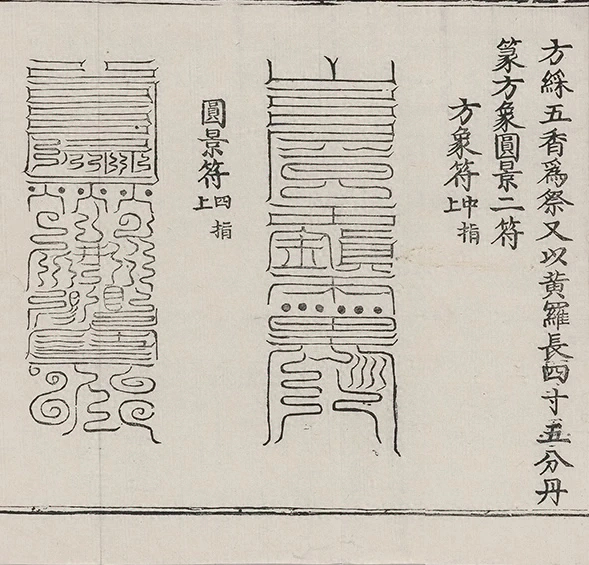 方綵五香爲祭又以黄羅長四寸五分丹
篆方象圓景二符
方象符中指上
圓景符四指上